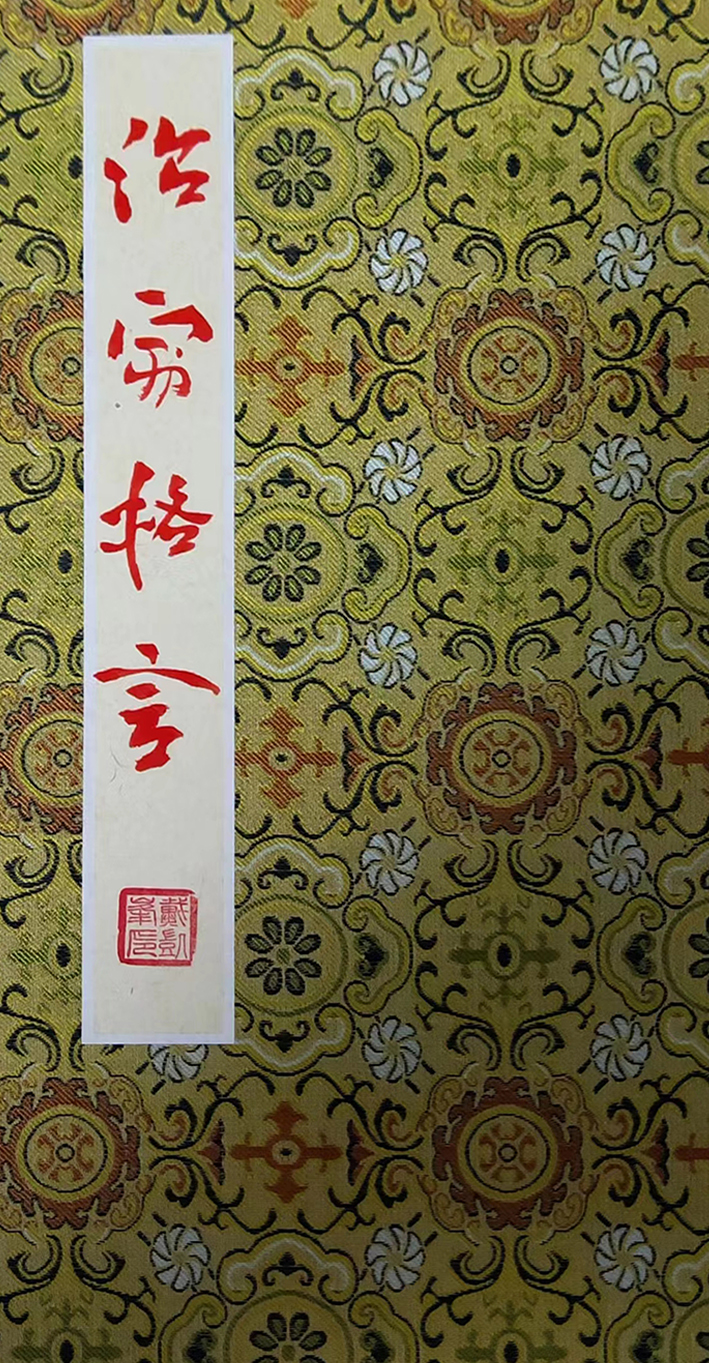 治家格言
戴凱
峯印